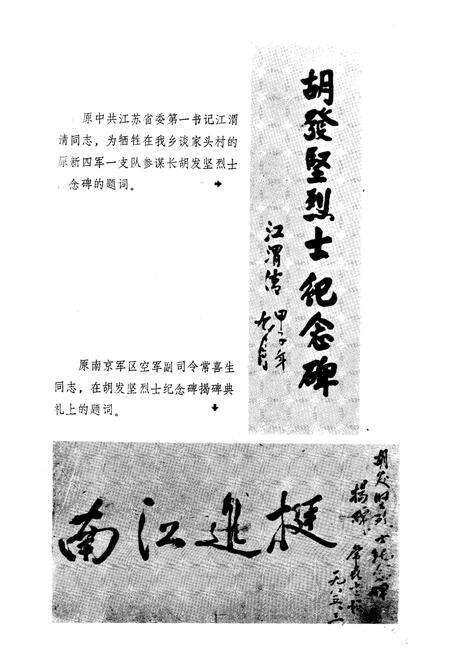 原中共江苏省委第一书记江渭
清同志，为牺牲在我乡谈家头村的
原新四军一支队参谋长胡发坚烈士
念碑的题词。
胡發堅烈士纪念碑
江渭清
甲子年
九月
原南京军区空军副司令常喜生
同志，在胡发坚烈士纪念碑揭碑典
礼上的题词。
挺进江南
胡发坚烈士纪念碑
揭碑